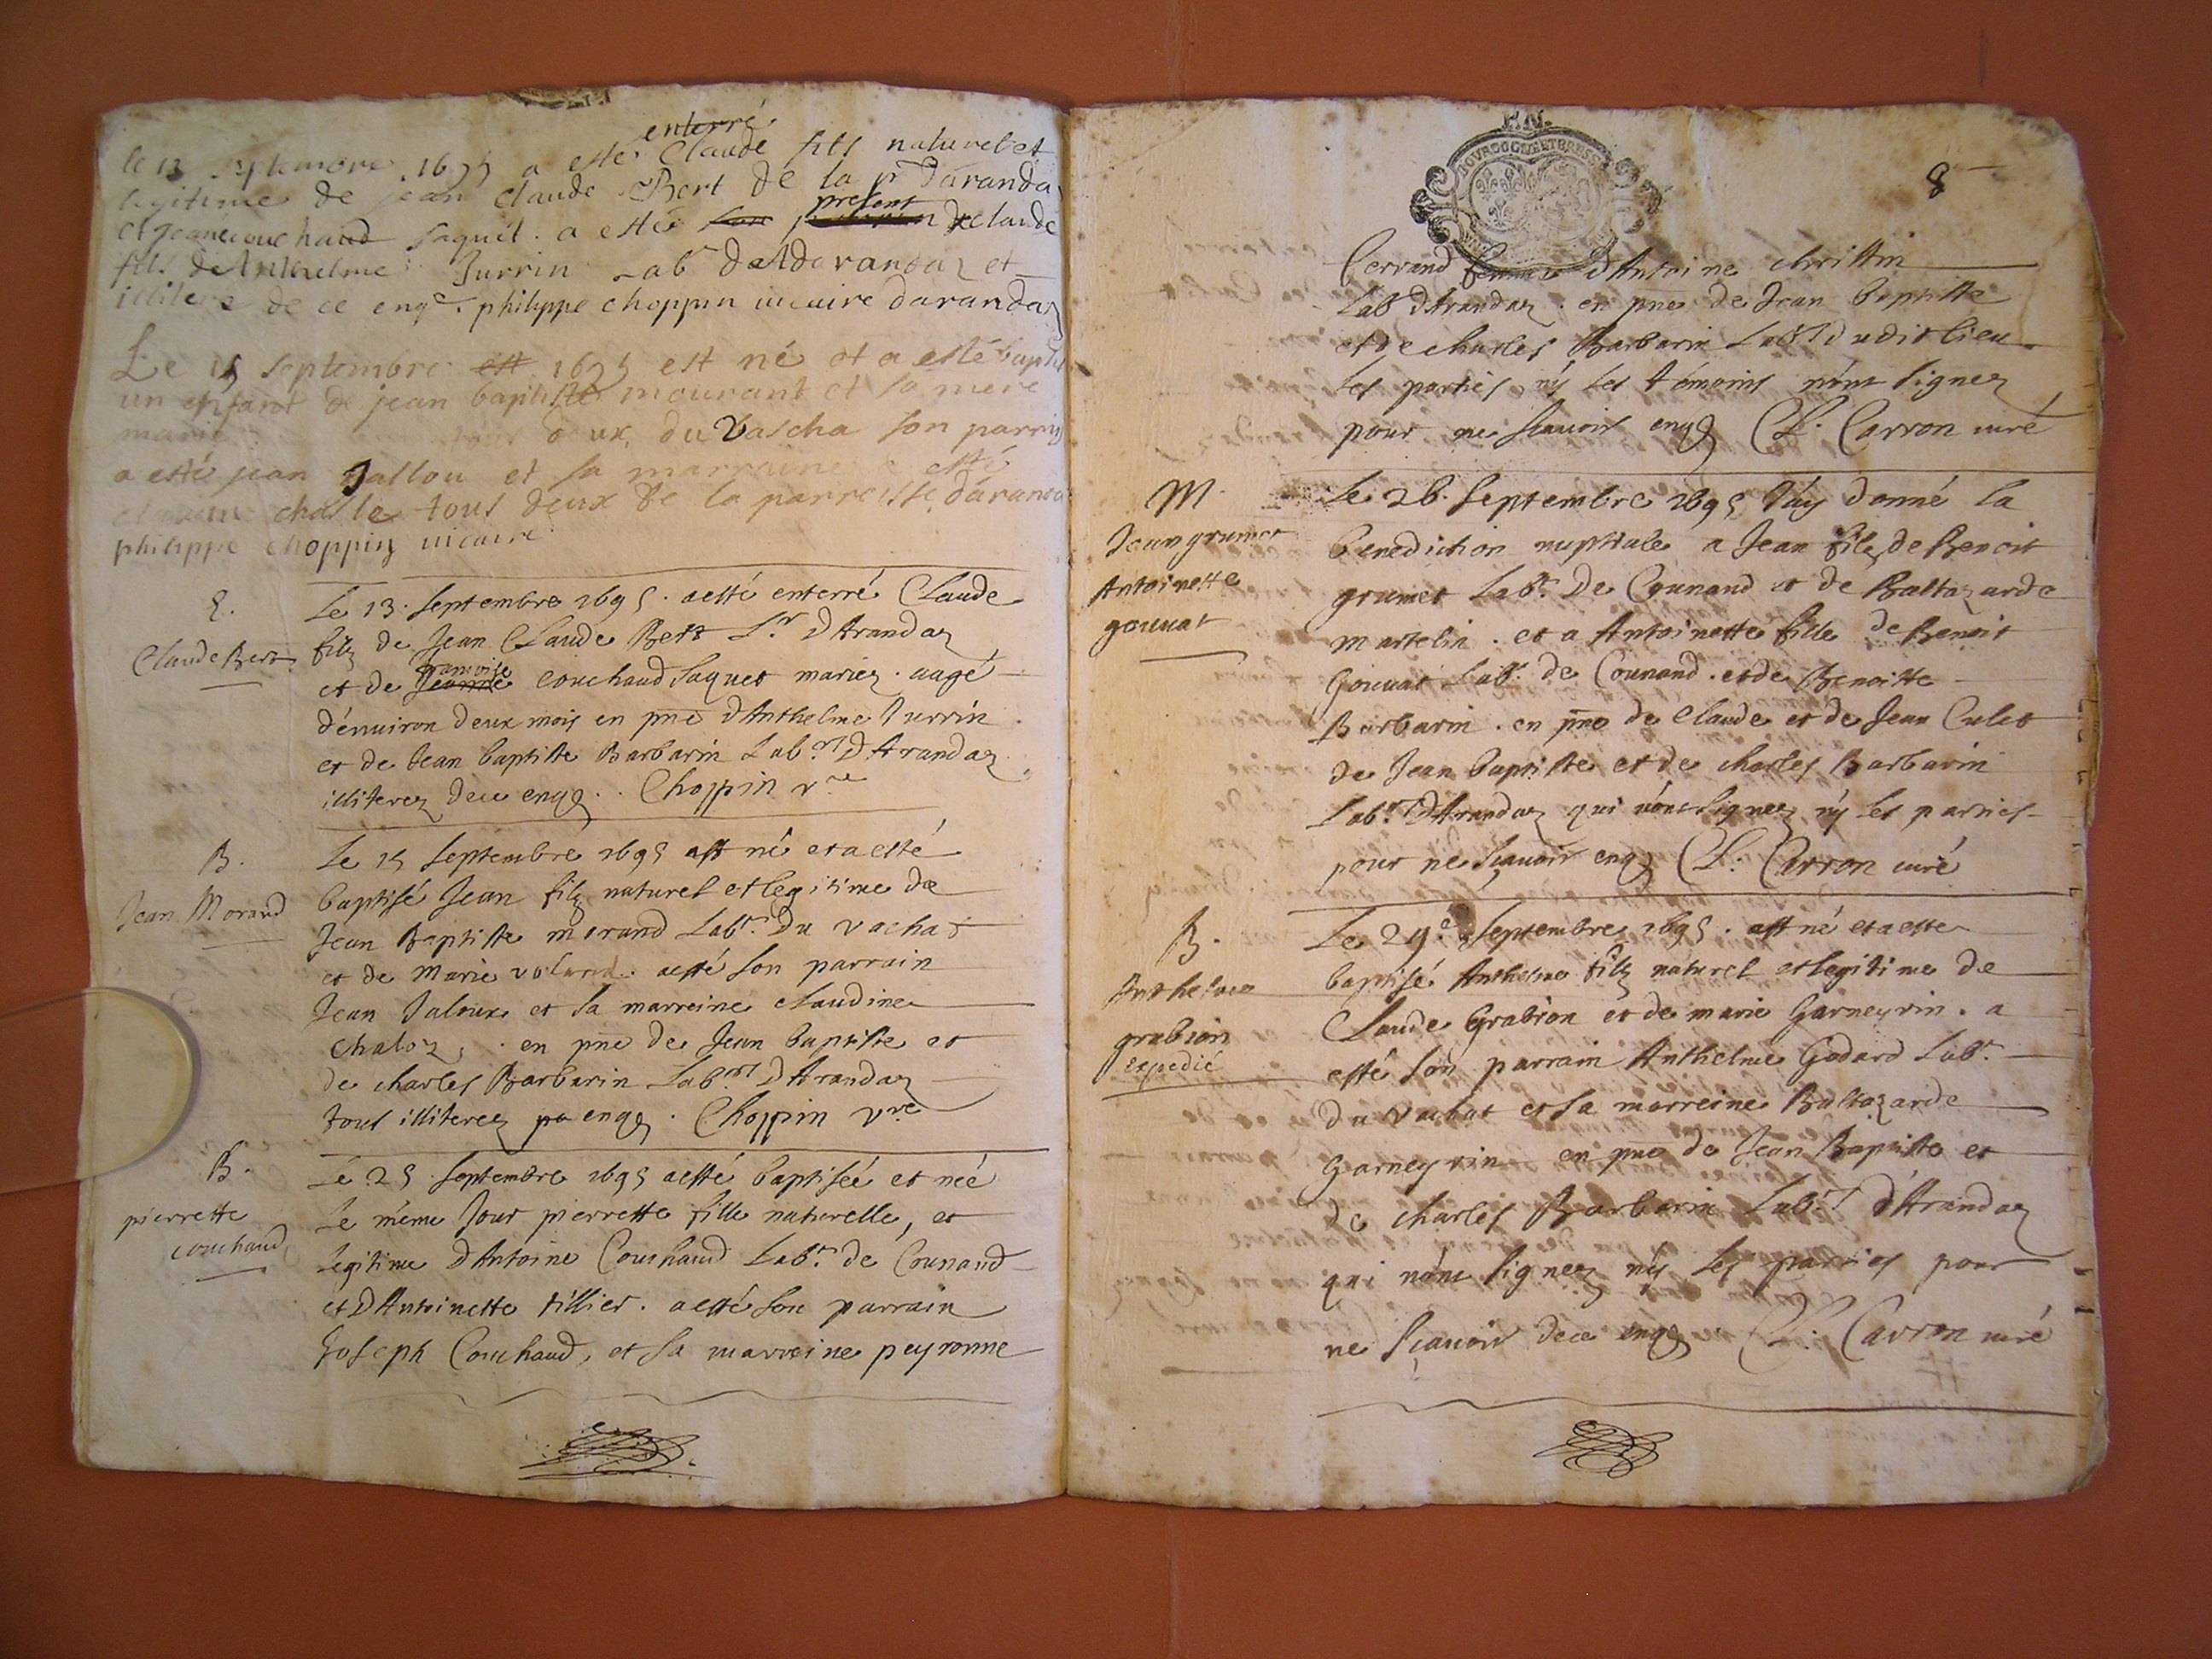 enterré
le 13 septembre 1695 a esté Claude fils naturel et
legitime de jean claude Bert de la pr darandas
et jeanne couchaud saquet. a esté present de claude
fils de Anthelme Jurrin Lab darandaz et
de ce enqe. philippe choppin vicaire darandaz
Le 15 septembre est 1695 est né et a esté baptisé
un enfant de jean baptiste mourant et sa mere
marie deux du Vascha son parrin
a esté jean Jallou et sa marraine a esté
charle tous deux de la parroisse daranda
philippe choppin vicaire
E.
Claude Bert
Le 13. septembre 1695. a esté enterré Claude
filz de Jean Claude Bert Lr. d'Arandaz
francoise
et de Jeanne couchaud saquet mariez. aagé
d'énuiron deux mois en pnce d'Anthelme Jurrin
et de Jean baptiste Barbarin Labrs. D'Arandaz
illiterez dece enqs. Choppin vre
B.
Jean Morand
Le 15 septembre 1695 est né et a esté
baptisé Jean filz naturel et legitime de
Jean Baptiste morand Labr. Du vachat
et de Marie voland. a esté son parrain
Jean Jaloux et sa marreine claudine
chaloz, . en pnce de Jean baptiste et
de charles Barbarin Labrs. D'Arandaz
tous illiterez pa enqs. Choppin vre
B.
pierrette
couchaud
Le 25 septembre 1695 a esté baptiséé et néé
Le méme Jour pierrette fille naturelle, et
Legitime D'Antoine Couchaud Labr. de Counand
et D'Antoinette tillier. a esté son parrain
Joseph Couchaud, et sa marreine peyronne
BOURGOGNE ET BRESSE
8
ferrand femme d'Antoine christin
Lab D'Arandaz. en pnce de Jean baptiste
et de charles Barbarin Labrs dudit lieu
les parties n'y les témoins n'ont signez
pour ne scauoir enqs C. Carron curé
M.
Jean grumet
Antoinette
gouuat
Le 26. septembre 1695 J'ay donné la
benediction nuptiale a Jean filz de Benoit
grumet Labr. De Counand et de Baltazarde
martelin. et a Antoinette fille de Benoit
Gouuat Labr. de Counand. et de Benoitte
Barbarin. en pnce de Claude et de Jean Culet
de Jean baptiste et de charles Barbarin
Labrs. D'Arandaz qui n'ont signez n'y les parties
pour ne sçauoir enqs C. Carron curé
B.
Anthelme
grabion
expedié
Le 29e septembre 1695. est né et a esté
baptisé Anthelme filz naturel et legitime de
Claude Grabion et de marie Garneyrin. a
esté son parrain Anthelme Godard Labr.
Du vachat et sa marreine Baltazarde
Garneyrin en pnce de Jean Baptiste et
de charles Barbarin Labrs. d'Arandaz
qui n'ont signez n'y les parties pour
ne sçauoir dece enqs C. Carron curé